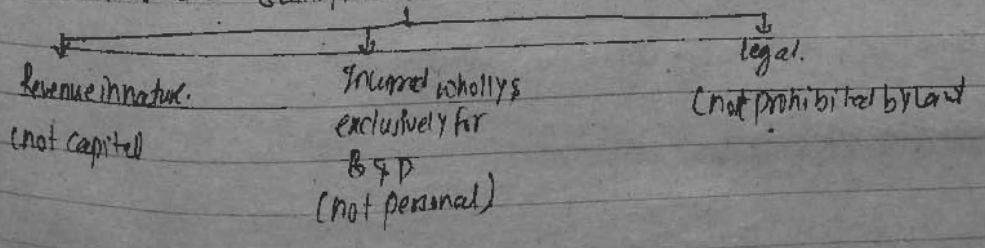 Revenue in nature.
(not capital
Incurred wholly &
exclusively for
B & P
(not personal)
legal.
(not prohibited by law